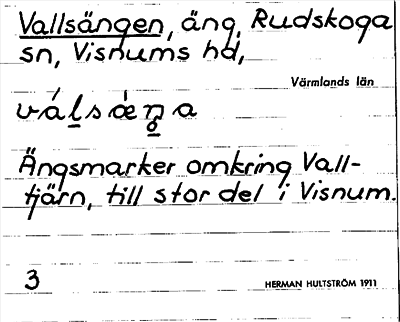 Vallsängen, äng, Rudskoga
sn, Visnums hd,
Värmlands län
Ängsmarker omkring Vall-
tjärn, till stor del i Visnum.
3
HERMAN HULTSTRÖM 1911